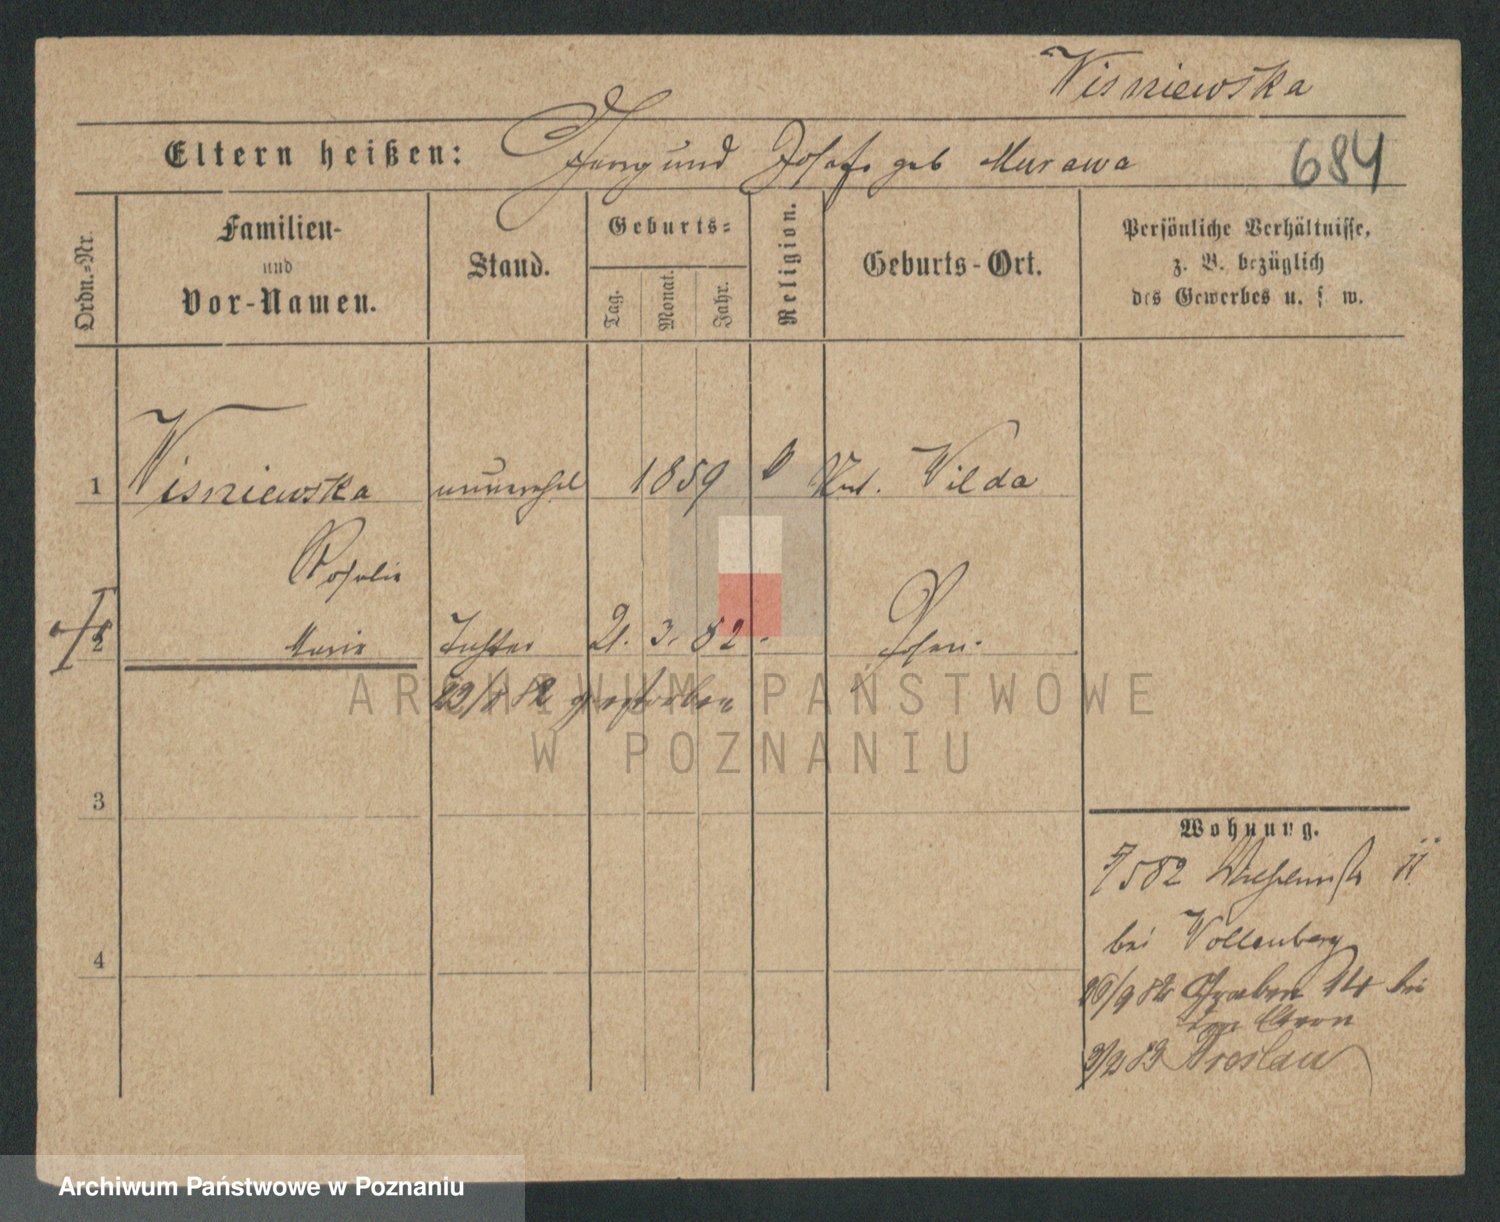 Wisniewska
Eltern heißen: und Josefa geb Murawa 684
Ordn.=Nr.
Familien-
und
Vor-Namen.
Stand.
Geburts=
Tag.
Monat.
Jahr.
Religion.
Geburts-Ort.
Persönliche Verhältnisse,
z. B. bezüglich
des Gewerbes u. s. w.
1 Wisniewska unverehel 1859 Unt. Wilda
Rosalie
2 Marie Tochter 21. 3. 82. Posen.
22/8 82 gestorben
ARCHIWUM PAŃSTWOWE
W POZNANIU
3
Wohnung.
7/582 Wilhelmstr 11
4
bei Vollenberg
20/9 82 Graben 14 bei
Aron
3/2 83 Breslau
Archiwum Państwowe w Poznaniu